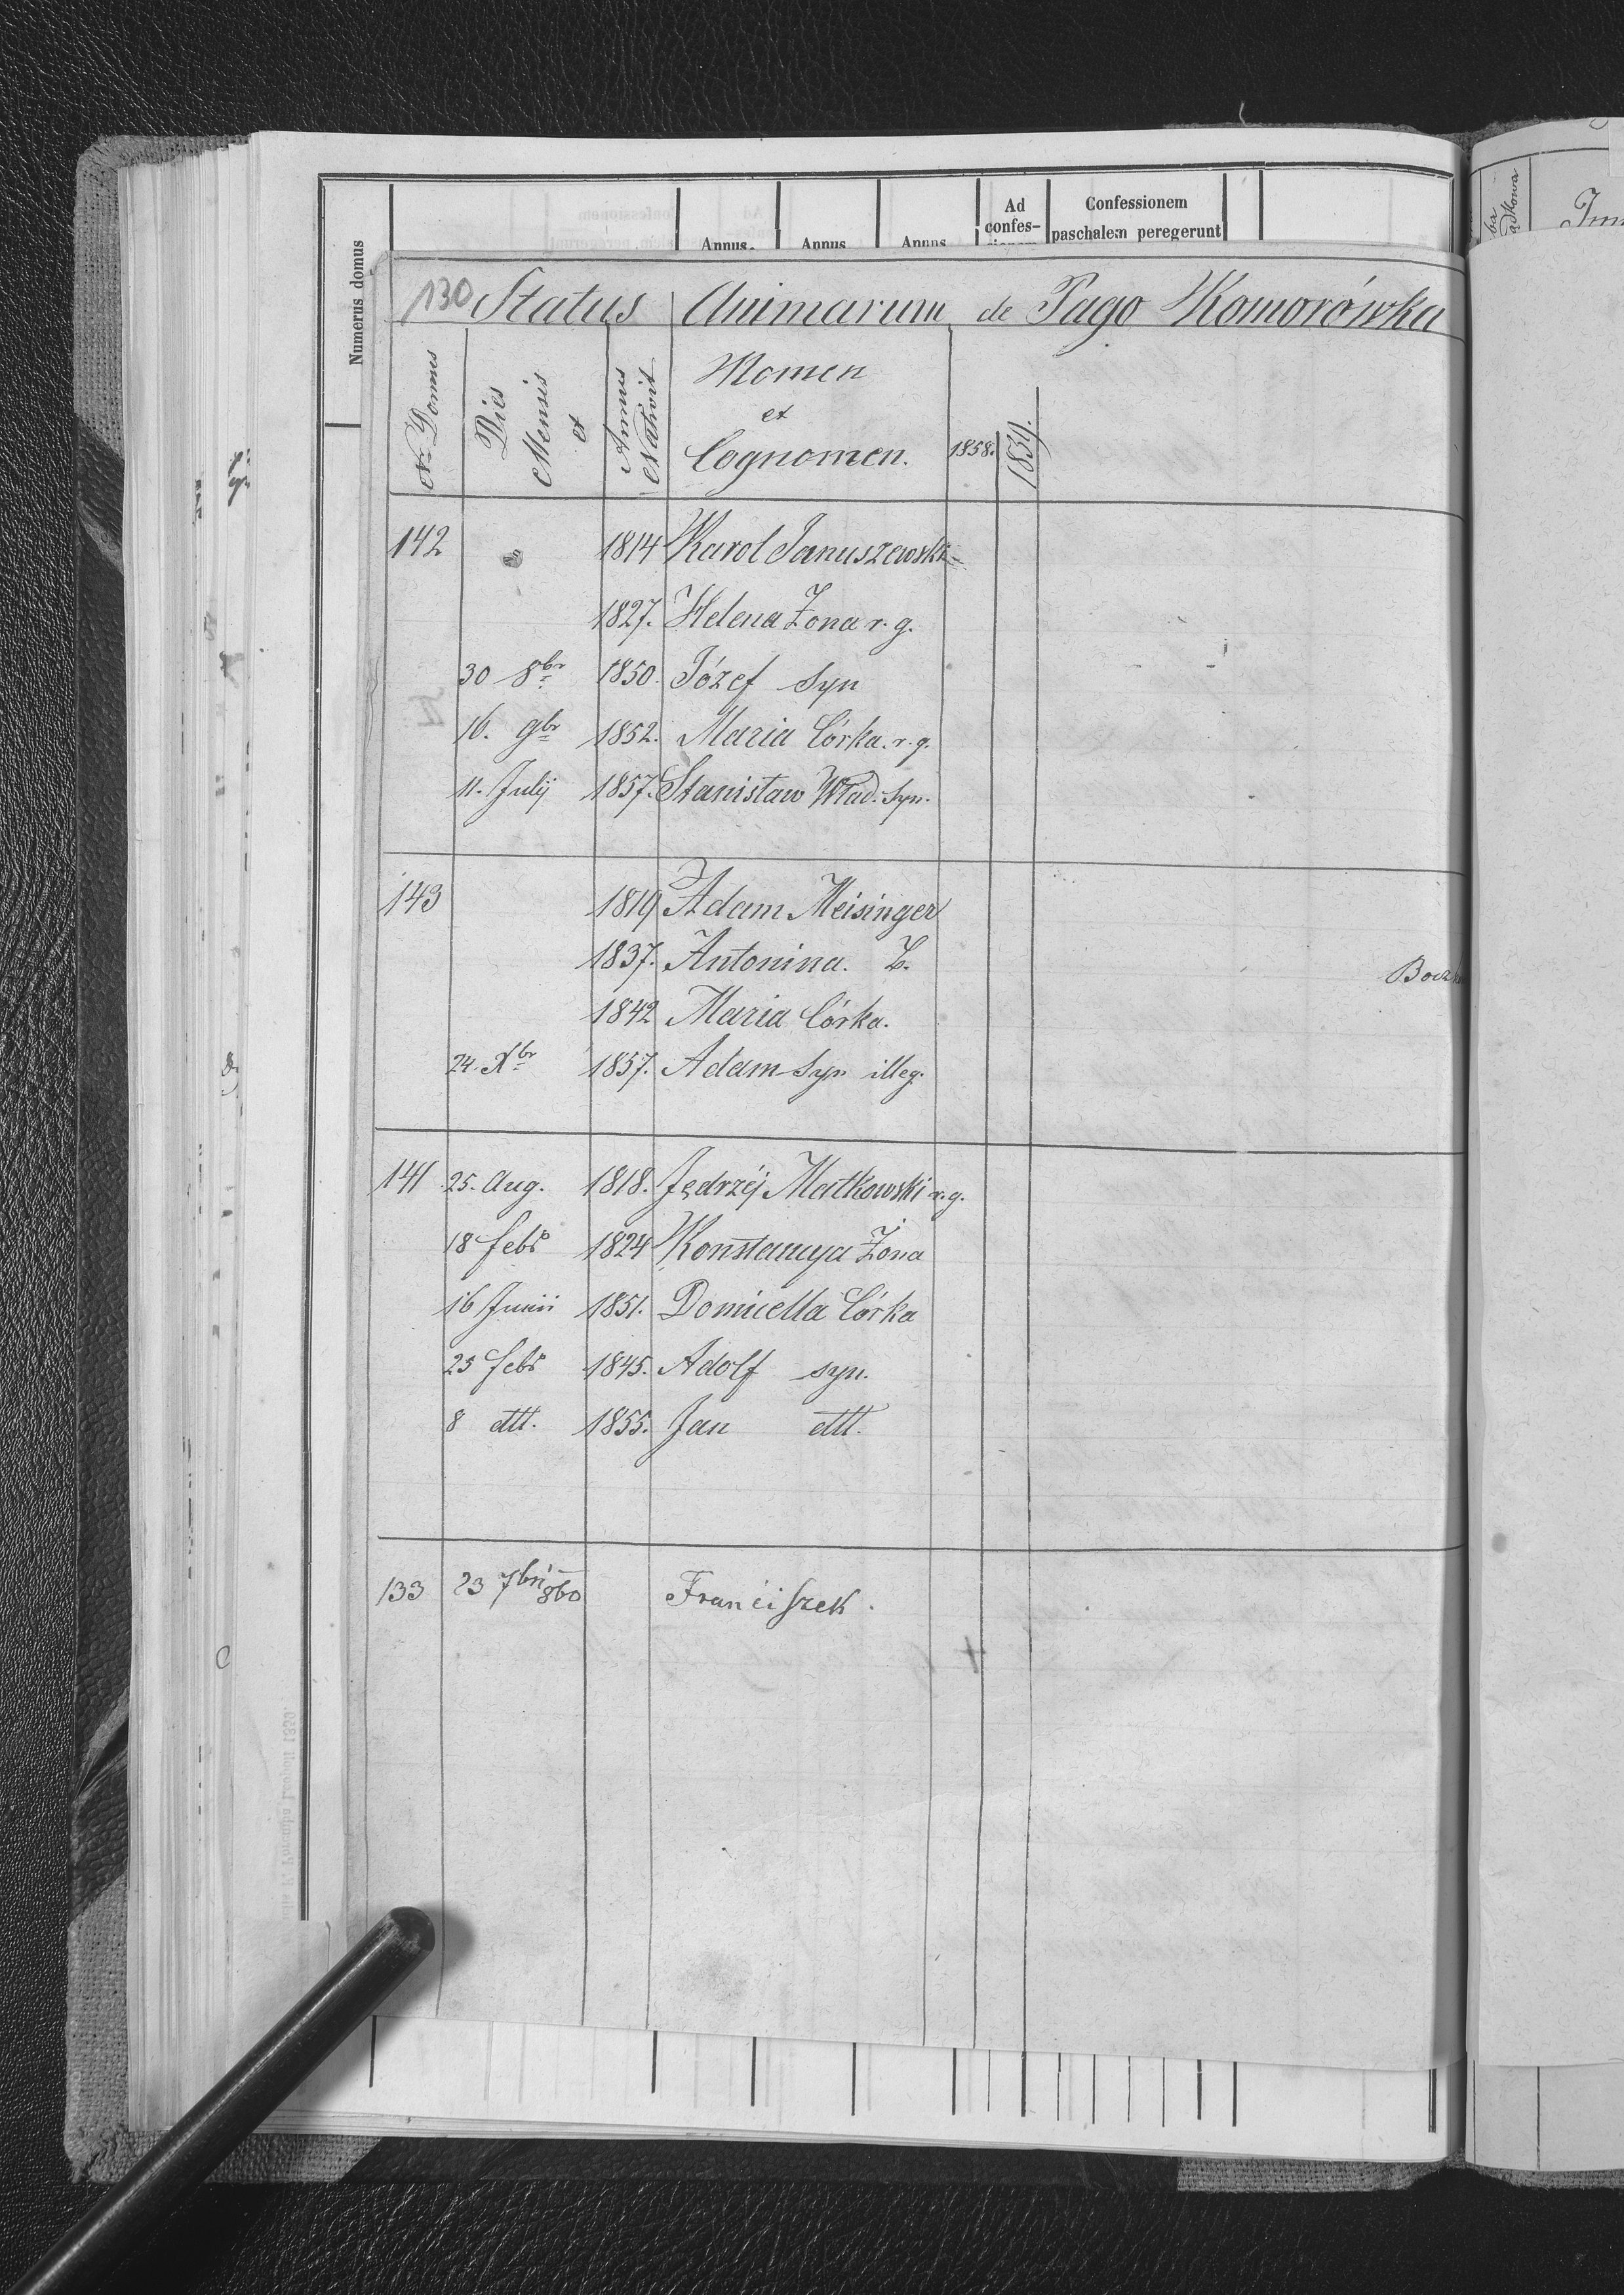 Numerus domus
Annus
Annus
Annus
Ad confes-
Confessionem paschalem peregerunt
130 Status Animarum de Pago Komorówka
Nr Domus
Dies Mensis et
Annus Nativit
Nomen et Cognomen.
1858.
1859.
142 1814 Karol Januszewski
1827. Helena Żona r. g.
30 8br 1850. Józef Syn
16. 9br 1852. Maria Córka. r. g.
11. Julij 1857. Stanisław Wład. Syn.
143 1819 Adam Meisinger
1837. Antonina. Ż.
1842 Maria Córka.
24. Xbr 1857. Adam Syn illeg.
141 25. Aug. 1818. Jędrzéj Matkowski r. g.
18 febr 1824 Konstancya Żona
16 Junii 1851. Domicella Córka
25 febr 1845. Adolf syn.
8 dtt. 1855. Jan dtt.
133 23 7bri 860 Franciszek.